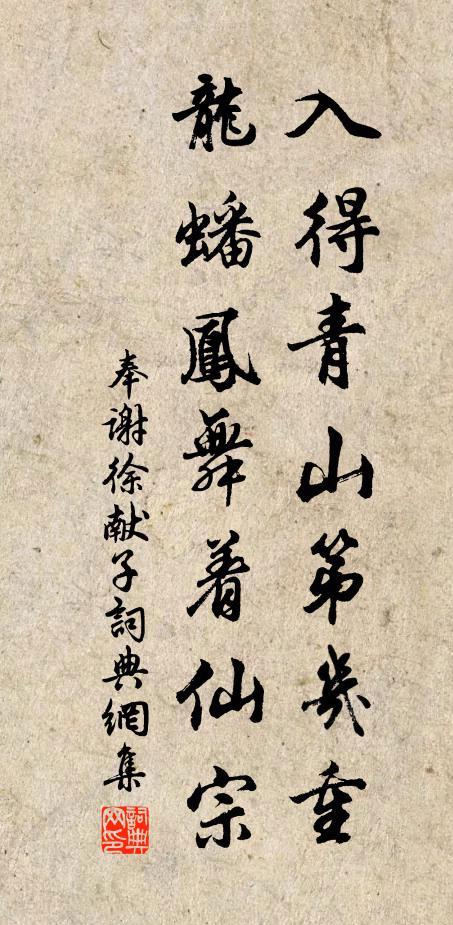 入得青山第幾重
龍蟠鳳舞着仙宗
奉謝徐献子詞典網集
詞典网印